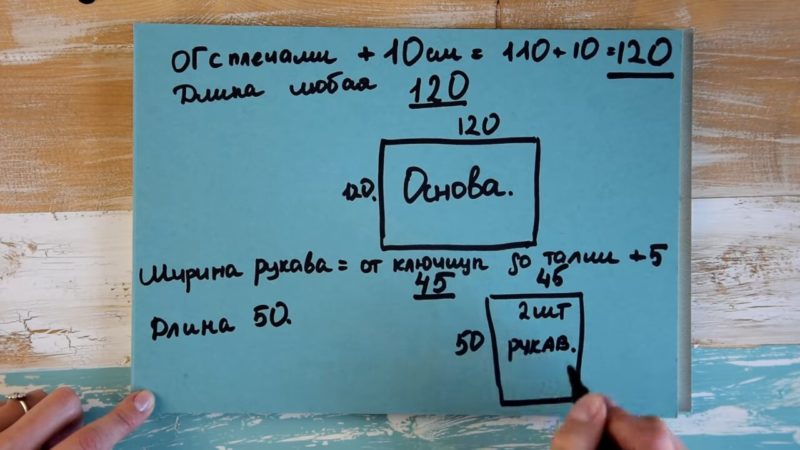 ОГ с плечами + 10 см = 110 + 10 = 120
Длина любая 120
120
120. Основа.
Ширина рукава = от ключиц до талии + 5
45 45
Длина 50.
2 шт
50 рукав.